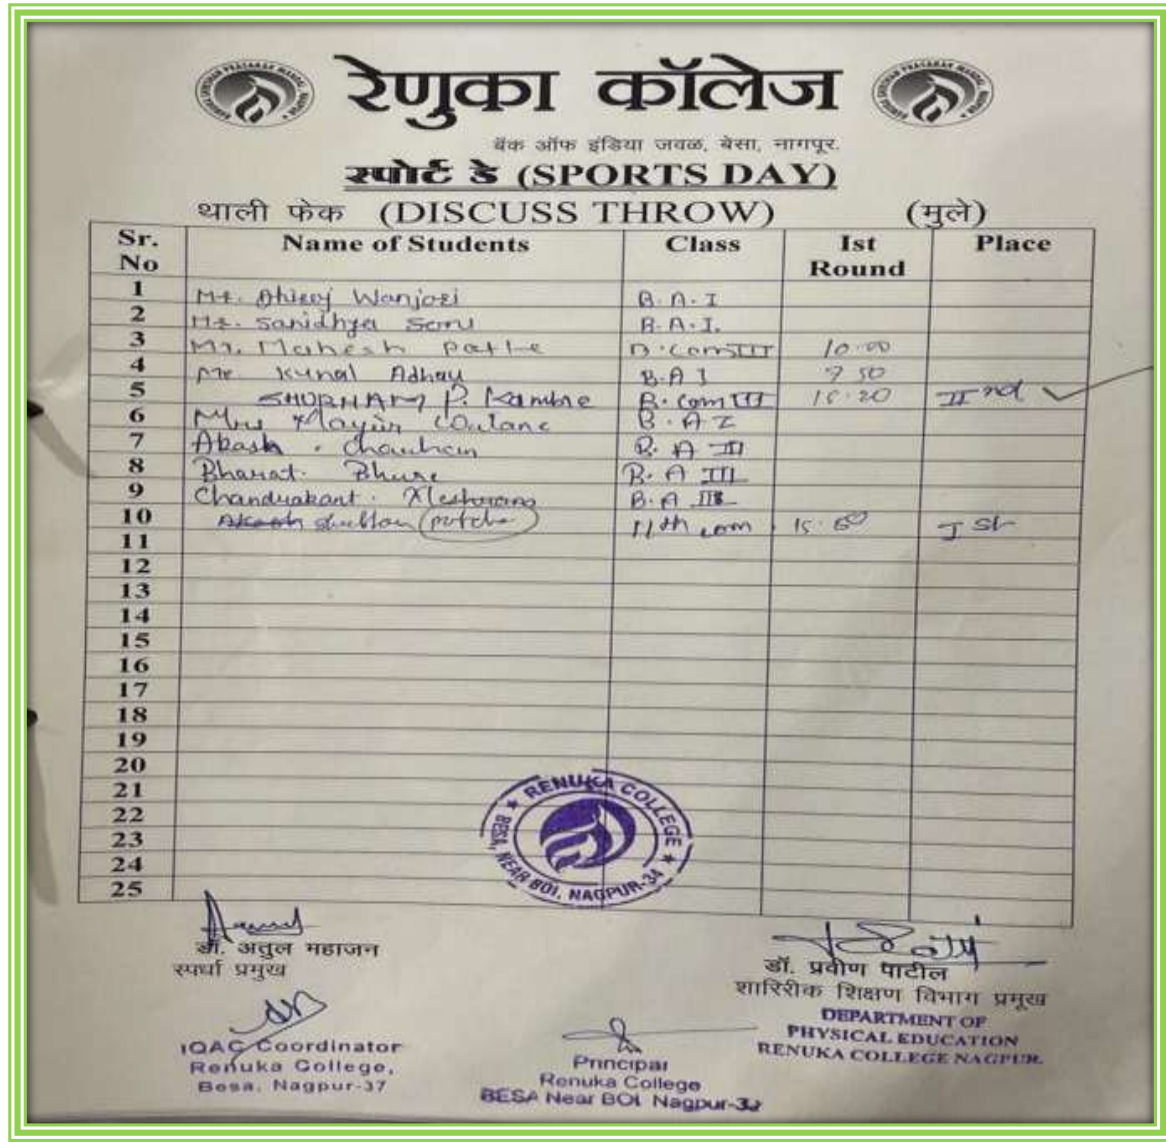 रेणुका कॉलेज
बॅंक ऑफ इंडिया जवळ, बेसा, नागपूर.
स्पोर्ट डे (SPORTS DAY)
थाली फेक (DISCUSS THROW) (मुले)
Sr. No Name of Students Class Ist Round Place
1 Mr. Dhiraj Wanjari B.A.I
2 Mr. Sanidhya B.A.I.
3 Mr. Mahesh Patle B.Com III 10.00
4 Mr Kunal Adhau B.A I 9.50
5 SHUBHAM P. Kamble B.Com III 15.20 II nd
6 Mayur B.A I
7 Akash . Chauhan B.A III
8 Bharat. Bhure B.A III
9 Chandrakant. Meshram B.A III
10 11th com 15.60 I st
11
12
13
14
15
16
17
18
19
20
21
22
23
24
25
RENUKA COLLEGE
BESA, NEAR BOI, NAGPUR-34
डॉ. अतुल महाजन
स्पर्धा प्रमुख
डॉ. प्रवीण पाटील
शारिरीक शिक्षण विभाग प्रमुख
DEPARTMENT OF
PHYSICAL EDUCATION
RENUKA COLLEGE NAGPUR.
IQAC Coordinator
Renuka College,
Besa, Nagpur-37
Principal
Renuka College
BESA Near BOI Nagpur-34